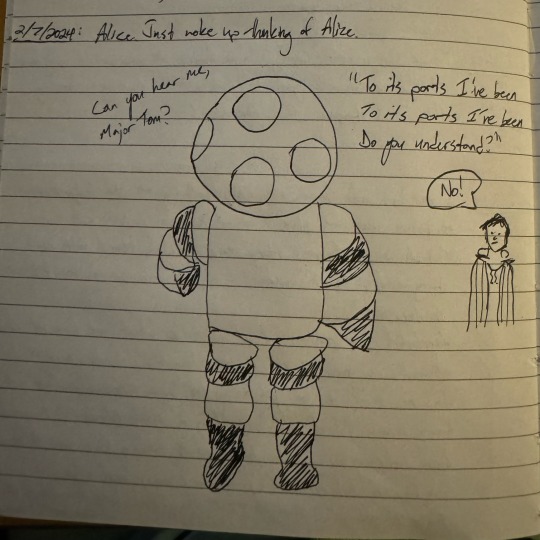 2/7/2024: Alice. Just woke up thinking of Alice.
Can you hear me,
Major Tom?
"To its ports I've been
To its ports I've been
Do you understand?"
No!